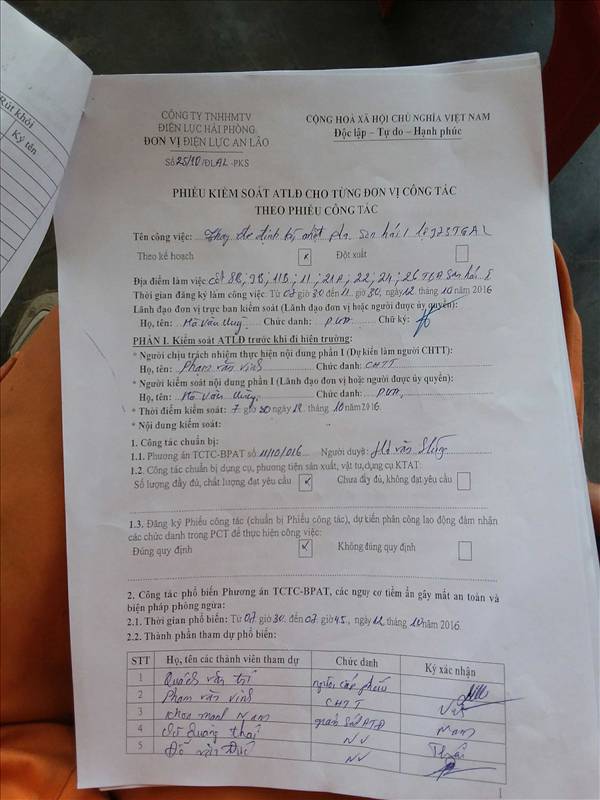 Rút khỏi
Ký tên
CÔNG TY TNHHMTV
ĐIỆN LỰC HẢI PHÒNG
ĐƠN VỊ ĐIỆN LỰC AN LÃO
Số 25/10/ĐLAL-PKS
CỘNG HOÀ XÃ HỘI CHỦ NGHĨA VIỆT NAM
Độc lập – Tự do – Hạnh phúc
PHIẾU KIỂM SOÁT ATLĐ CHO TỪNG ĐƠN VỊ CÔNG TÁC
THEO PHIẾU CÔNG TÁC
Tên công việc: Thay thế định kỳ
Theo kế hoạch Đột xuất
Địa điểm làm việc: cột 8B; 9B; 11B; 11; 21A; 22; 24; 26 TBA
Thời gian đăng ký làm công việc: Từ 07 giờ 30 đến 11 giờ 30, ngày 12 tháng 10 năm 2016
Lãnh đạo đơn vị trực ban kiểm soát (Lãnh đạo đơn vị hoặc người được ủy quyền):
Họ, tên: Chức danh: Chữ ký:
PHẦN I. Kiểm soát ATLĐ trước khi đi hiện trường:
* Người chịu trách nhiệm thực hiện nội dung phần I (Dự kiến làm người CHTT):
Họ, tên: Phạm văn vinh Chức danh: CHTT
* Người kiểm soát nội dung phần I (Lãnh đạo đơn vị hoặc người được ủy quyền):
Họ, tên: Chức danh:
* Thời điểm kiểm soát: 7 giờ 30 ngày 12 tháng 10 năm 2016
* Nội dung kiểm soát:
1. Công tác chuẩn bị:
1.1. Phương án TCTC-BPAT số Người duyệt:
1.2. Công tác chuẩn bị dụng cụ, phương tiện sản xuất, vật tư, dụng cụ KTAT:
Số lượng đầy đủ, chất lượng đạt yêu cầu Chưa đầy đủ, không đạt yêu cầu
1.3. Đăng ký Phiếu công tác (chuẩn bị Phiếu công tác), dự kiến phân công lao động đảm nhận
các chức danh trong PCT để thực hiện công việc:
Đúng quy định Không đúng quy định
2. Công tác phổ biến Phương án TCTC-BPAT, các nguy cơ tiềm ẩn gây mất an toàn và
biện pháp phòng ngừa:
2.1. Thời gian phổ biến: Từ 07 giờ 30 đến 07 giờ 45, ngày 12 tháng 10 năm 2016
2.2. Thành phần tham dự phổ biến:
STT Họ, tên các thành viên tham dự Chức danh Ký xác nhận
1 Quách văn trí người cấp phiếu
2 Phạm văn vinh CHTT
3 Khoa mạnh Nam giám sát ATĐ Nam
4 quang thái NV Thái
5 Đỗ văn NV